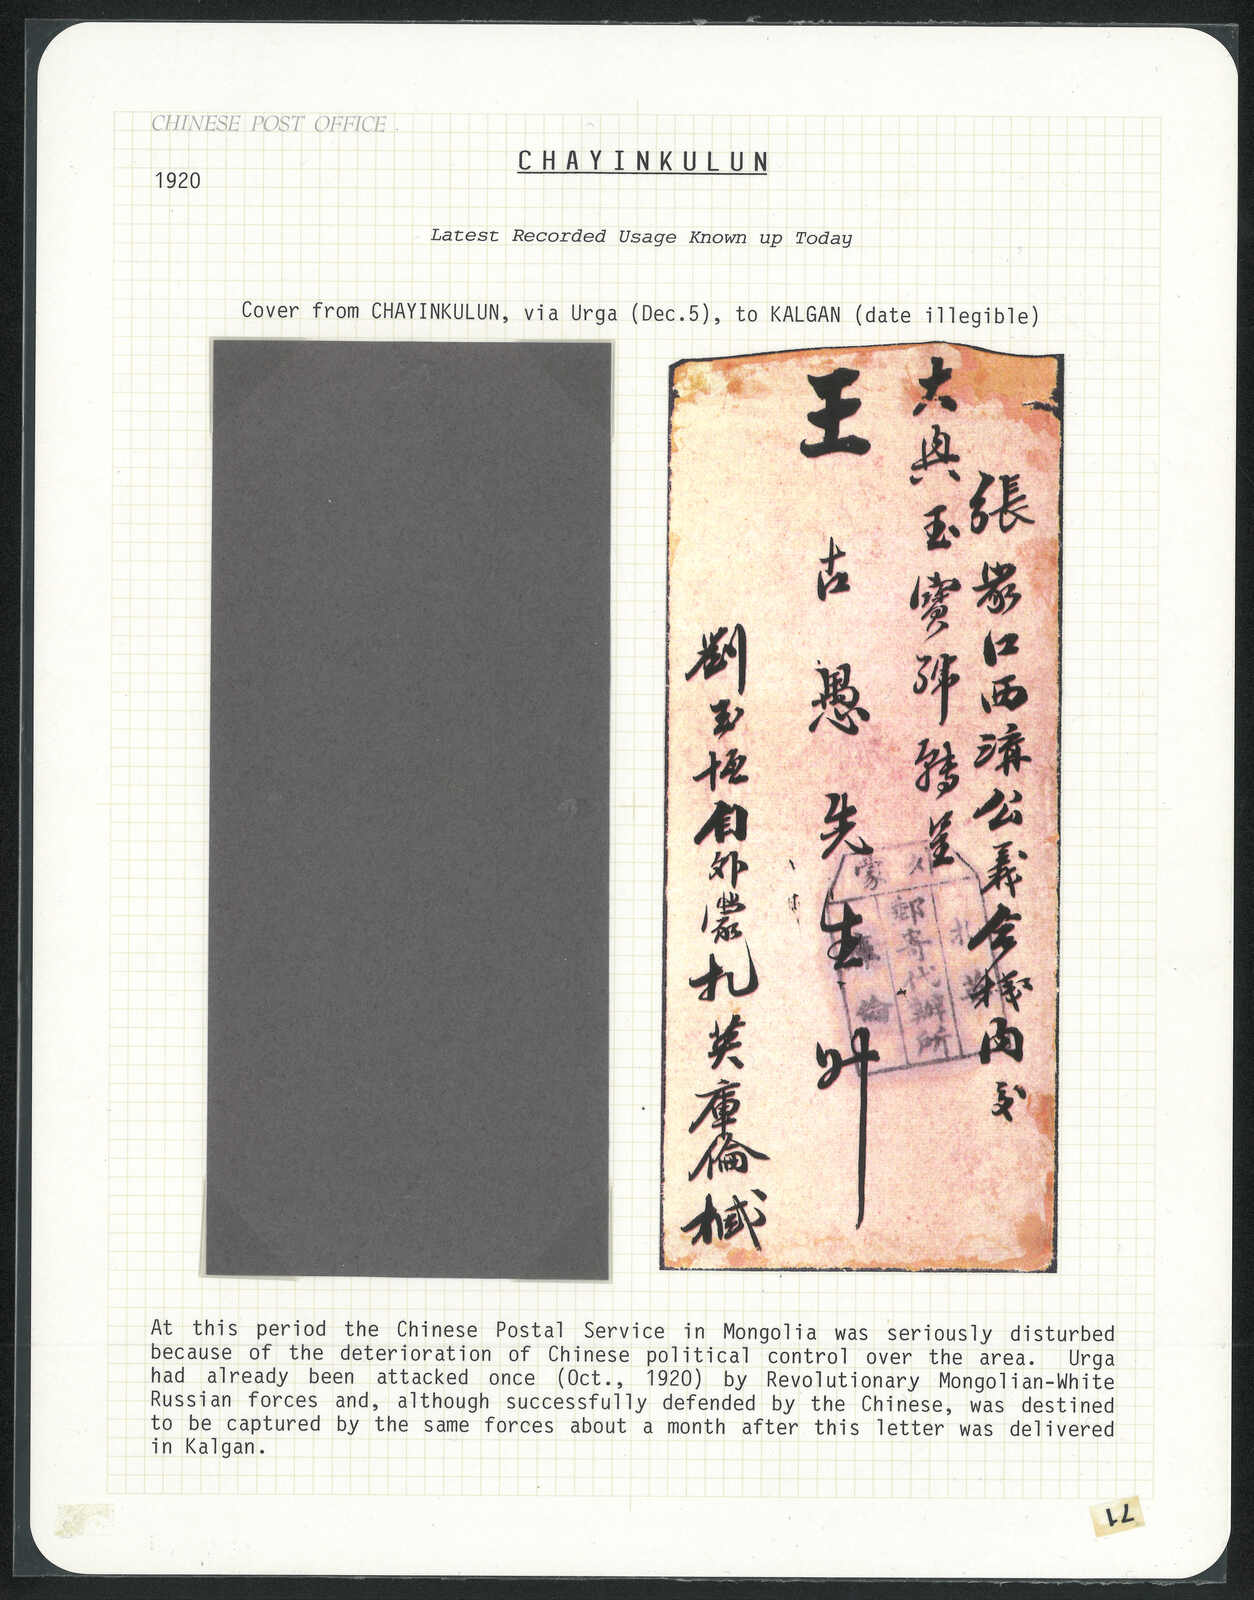 CHINESE POST OFFICE
CHAYINKULUN
1920
Latest Recorded Usage Known up Today
Cover from CHAYINKULUN, via Urga (Dec.5), to KALGAN (date illegible)
張家口西溝公義合棧內交
大興玉寶號轉呈
王古愚先生
劉玉恒自外蒙札英庫倫緘
外蒙
札英
郵寄代辦所
庫倫
At this period the Chinese Postal Service in Mongolia was seriously disturbed
because of the deterioration of Chinese political control over the area. Urga
had already been attacked once (Oct., 1920) by Revolutionary Mongolian-White
Russian forces and, although successfully defended by the Chinese, was destined
to be captured by the same forces about a month after this letter was delivered
in Kalgan.
71